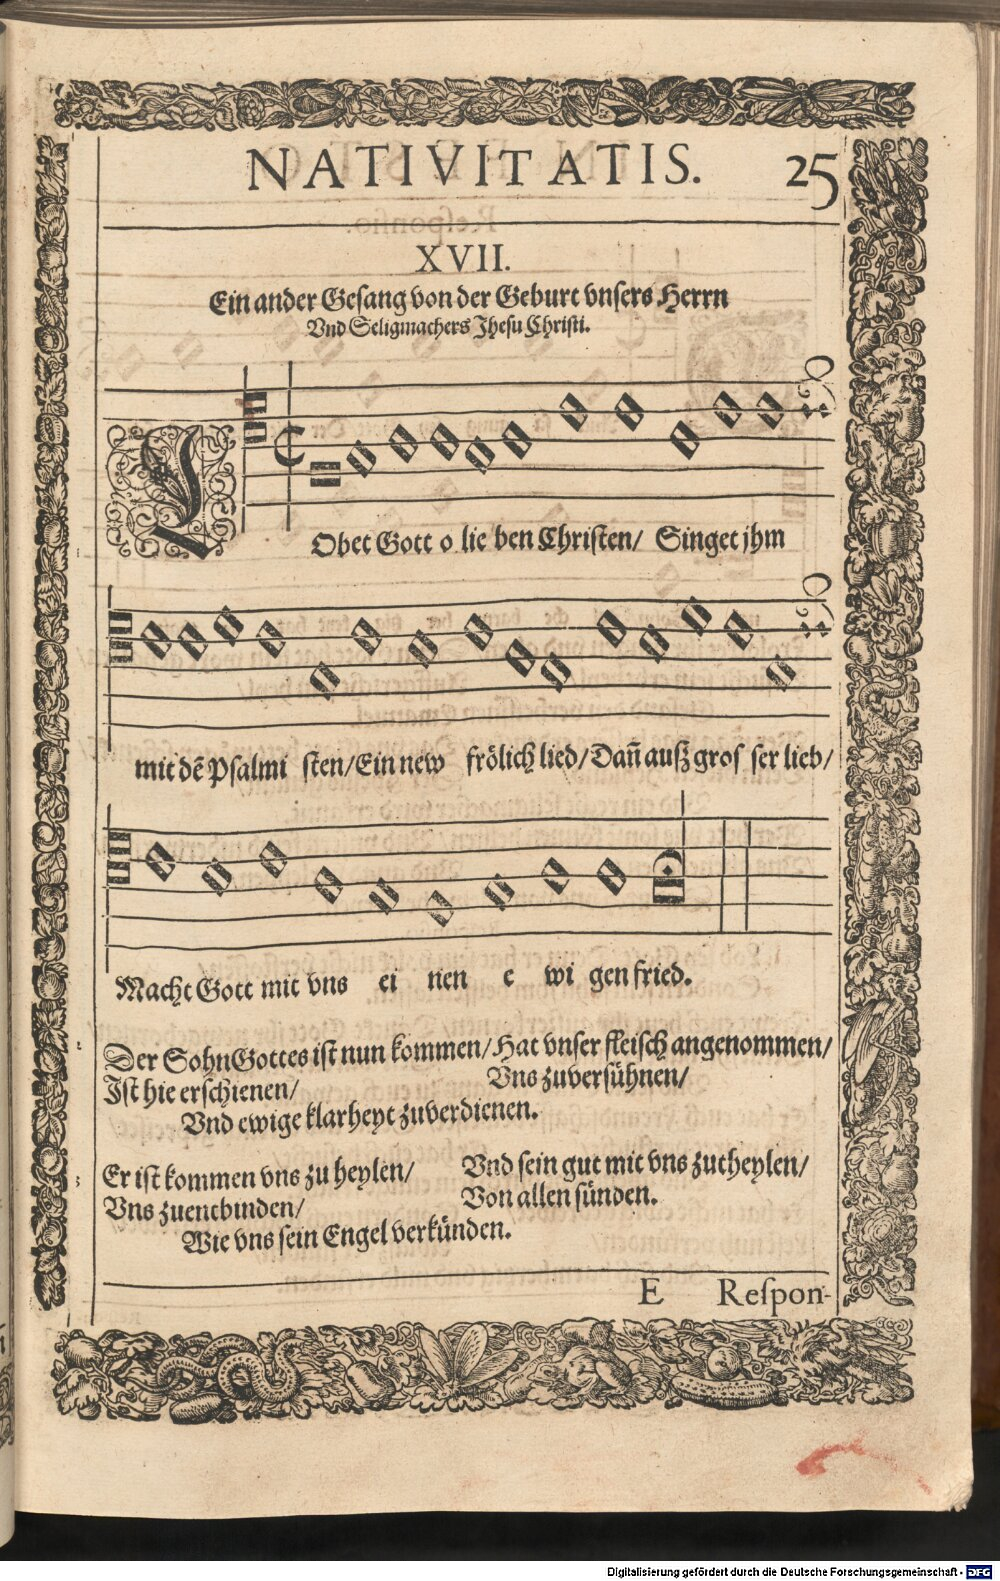 NATIVITATIS. 25
XVII.
Ein ander Gesang von der Geburt vnsers Herrn
Vnd Seligmachers Jhesu Christi.
LObet Gott o lie ben Christen/ Singet jhm
mit dẽ Psalmi sten/ Ein new frölich lied/ Dañ auß gros ser lieb/
Macht Gott mit vns ei nen e wi gen fried.
Der Sohn Gottes ist nun kommen/ Hat vnser fleisch angenommen/
Ist hie erschienen/ Vns zuversühnen/
Vnd ewige klarheyt zuverdienen.
Er ist kommen vns zu heylen/ Vnd sein gut mit vns zutheylen/
Vns zuentbinden/ Von allen sünden.
Wie vns sein Engel verkünden.
E Reſpon-
Digitalisierung gefördert durch die Deutsche Forschungsgemeinschaft - DFG